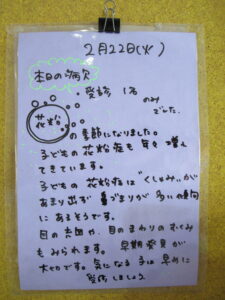 2月22日(火)
本日の病欠
受診 1名
のみ
でした。
花粉
の季節になりました。
子どもの花粉症も年々増え
てきています。
子どもの花粉症は"くしゃみ"が
あまり出ず 鼻づまりが多い傾向
にあるそうです。
目の充血や、目のまわりのむくみ
もみられます。 早期発見が
大切です。気になる子は早めに
受診しましょう